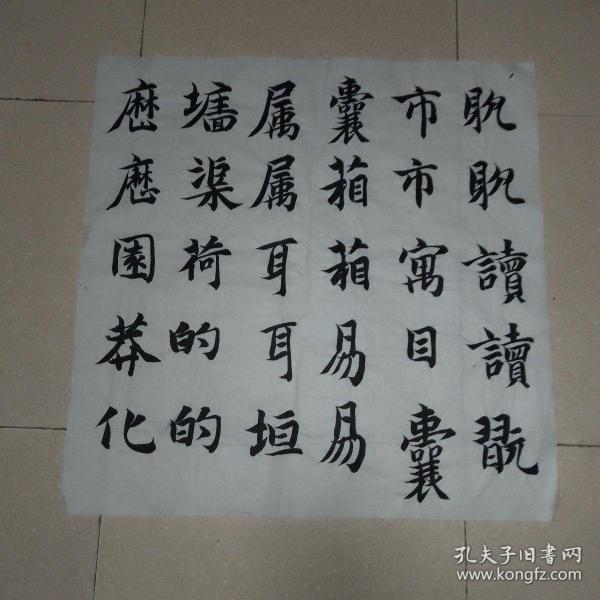 耽耽讀讀翫
市市寓目囊
囊箱箱易易
属属耳耳垣
墻渠荷的的
歷歷園莽化
孔夫子旧書网
www.kongfz.com